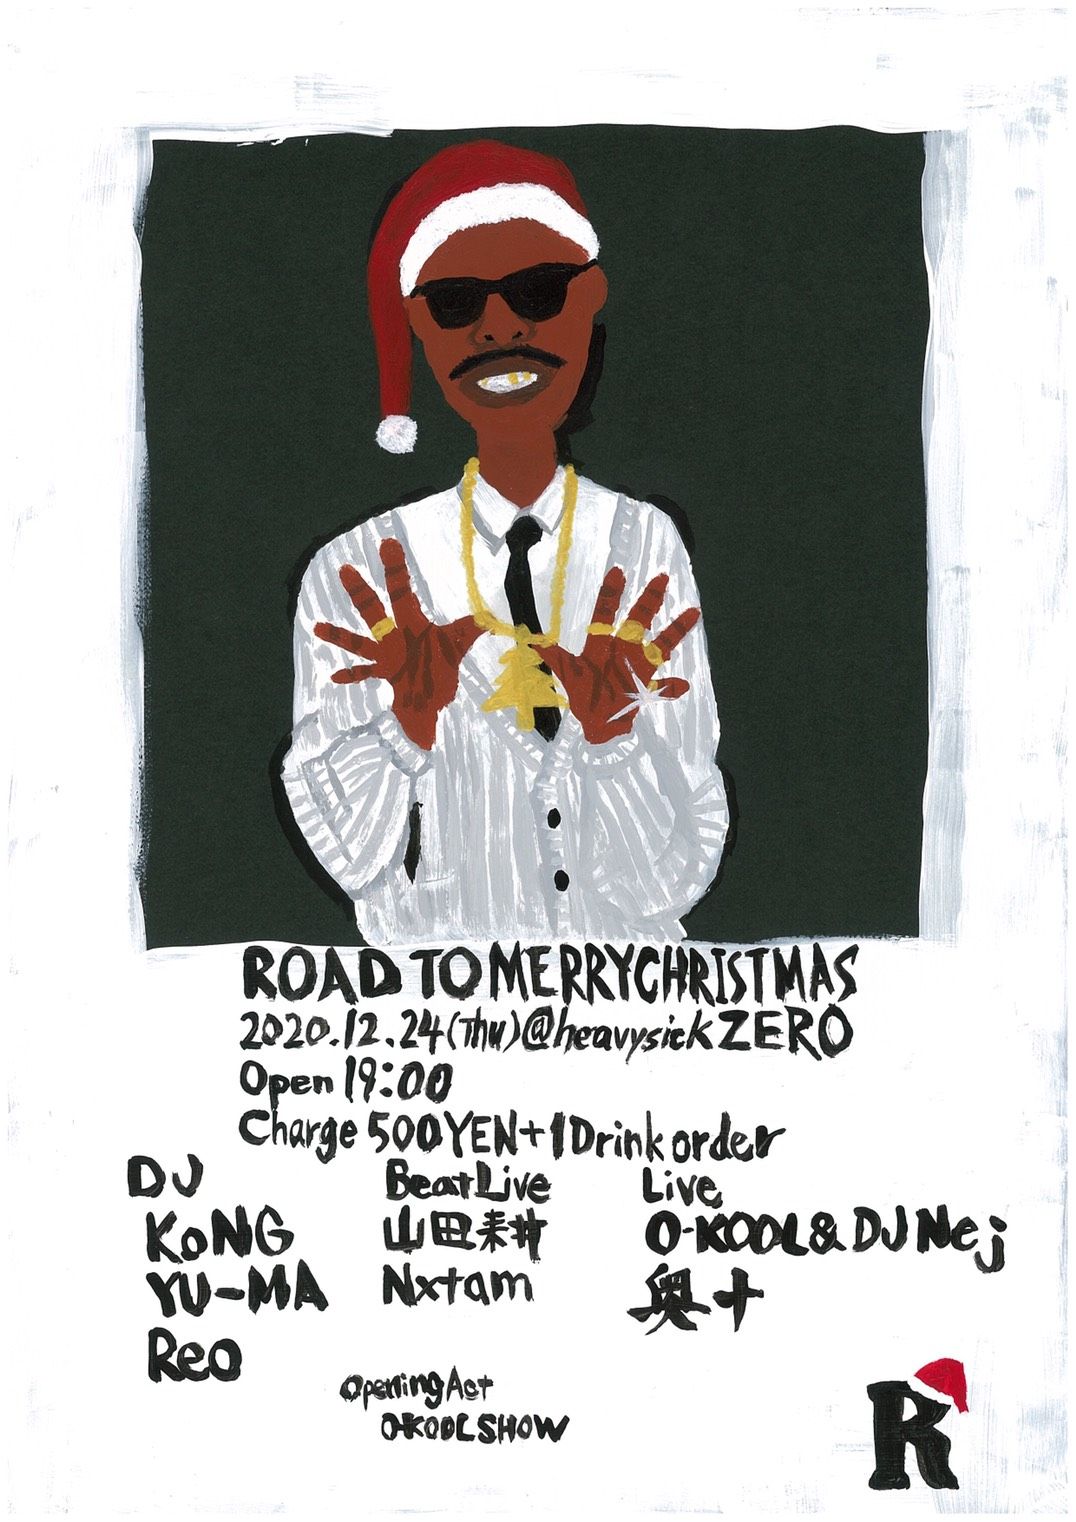 ROAD TO MERRYCHRISTMAS
2020.12.24(Thu)@heavysick ZERO
Open 19:00
Charge 500YEN+1Drink order
DJ
KoNG
YU-MA
Reo
BeatLive
山田耕
Nxtam
Live
O-KOOL&DJ Nej
奥十
Opening Act
O-KOOL SHOW
R